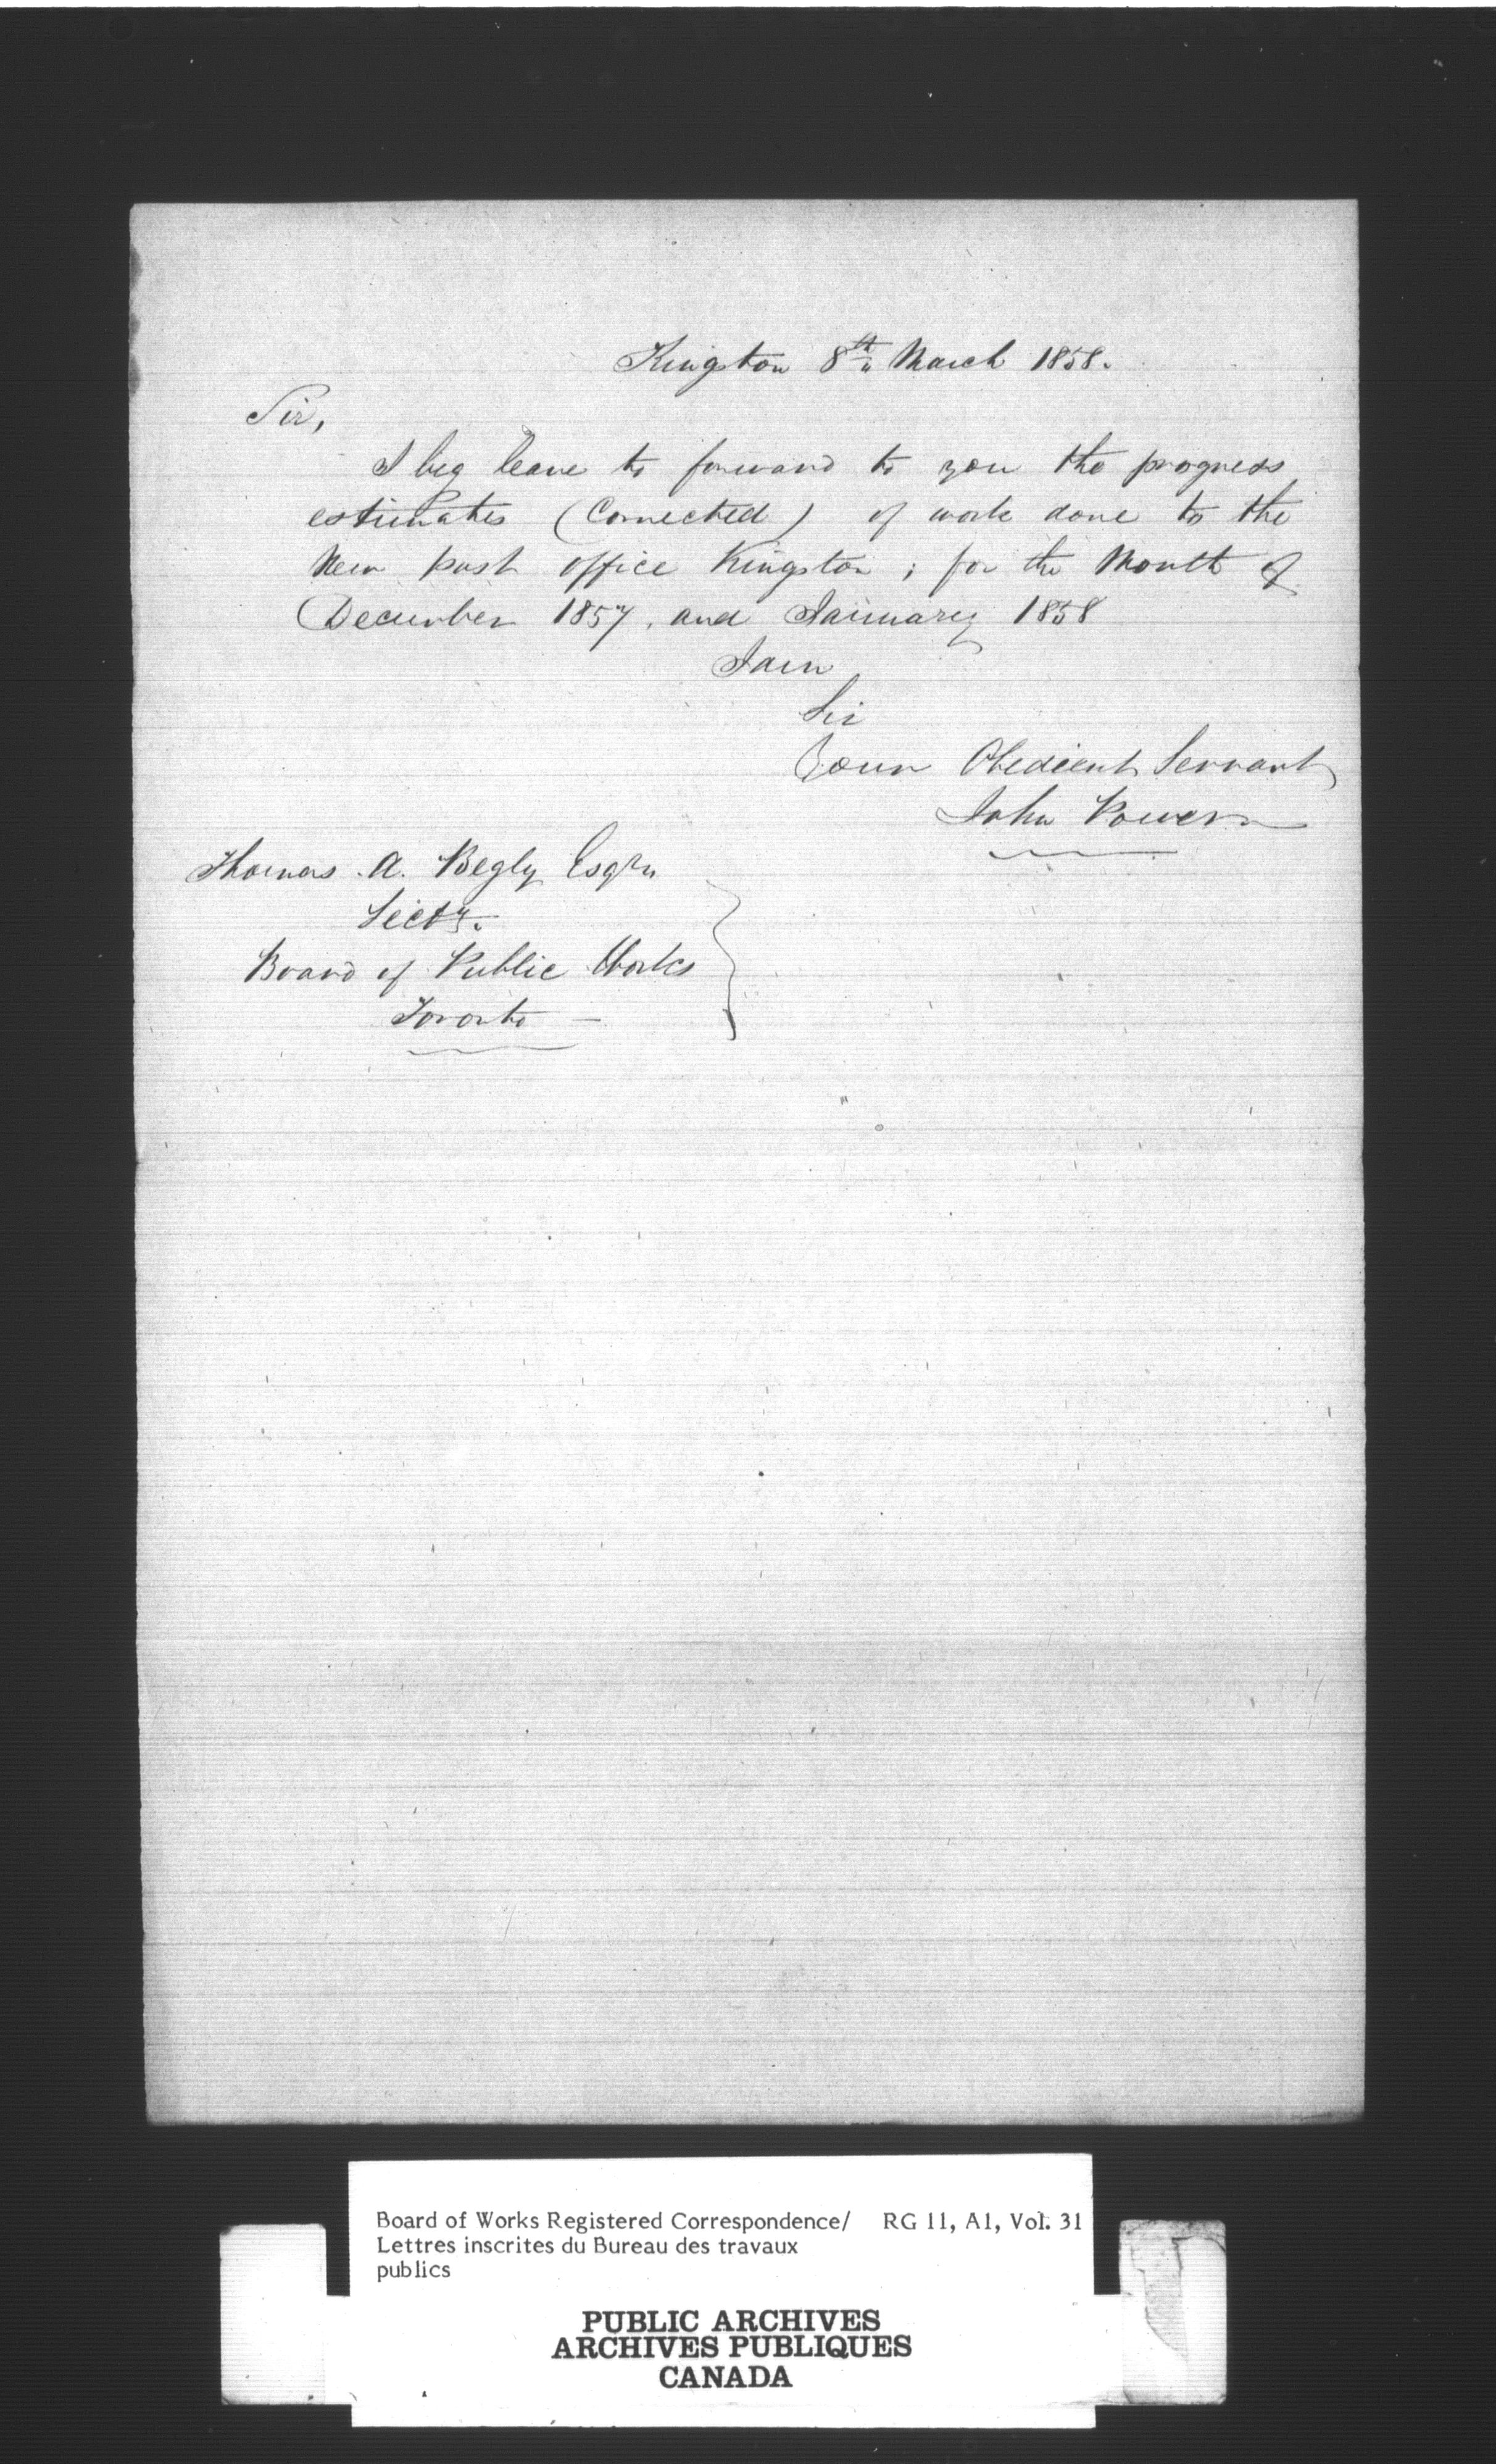 Kingston 8th March 1858.
Sir,
I beg leave to forward to you the progress
estimates (Corrected) of work done to the
New post office Kingston; for the Month of
December 1857, and January 1858
I am
Sir
Your Obedient Servant
John Power
Thomas A. Begly Esqr
Secty.
Board of Public Works
Toronto —
Board of Works Registered Correspondence/ RG 11, A1, Vol. 31
Lettres inscrites du Bureau des travaux
publics
PUBLIC ARCHIVES
ARCHIVES PUBLIQUES
CANADA